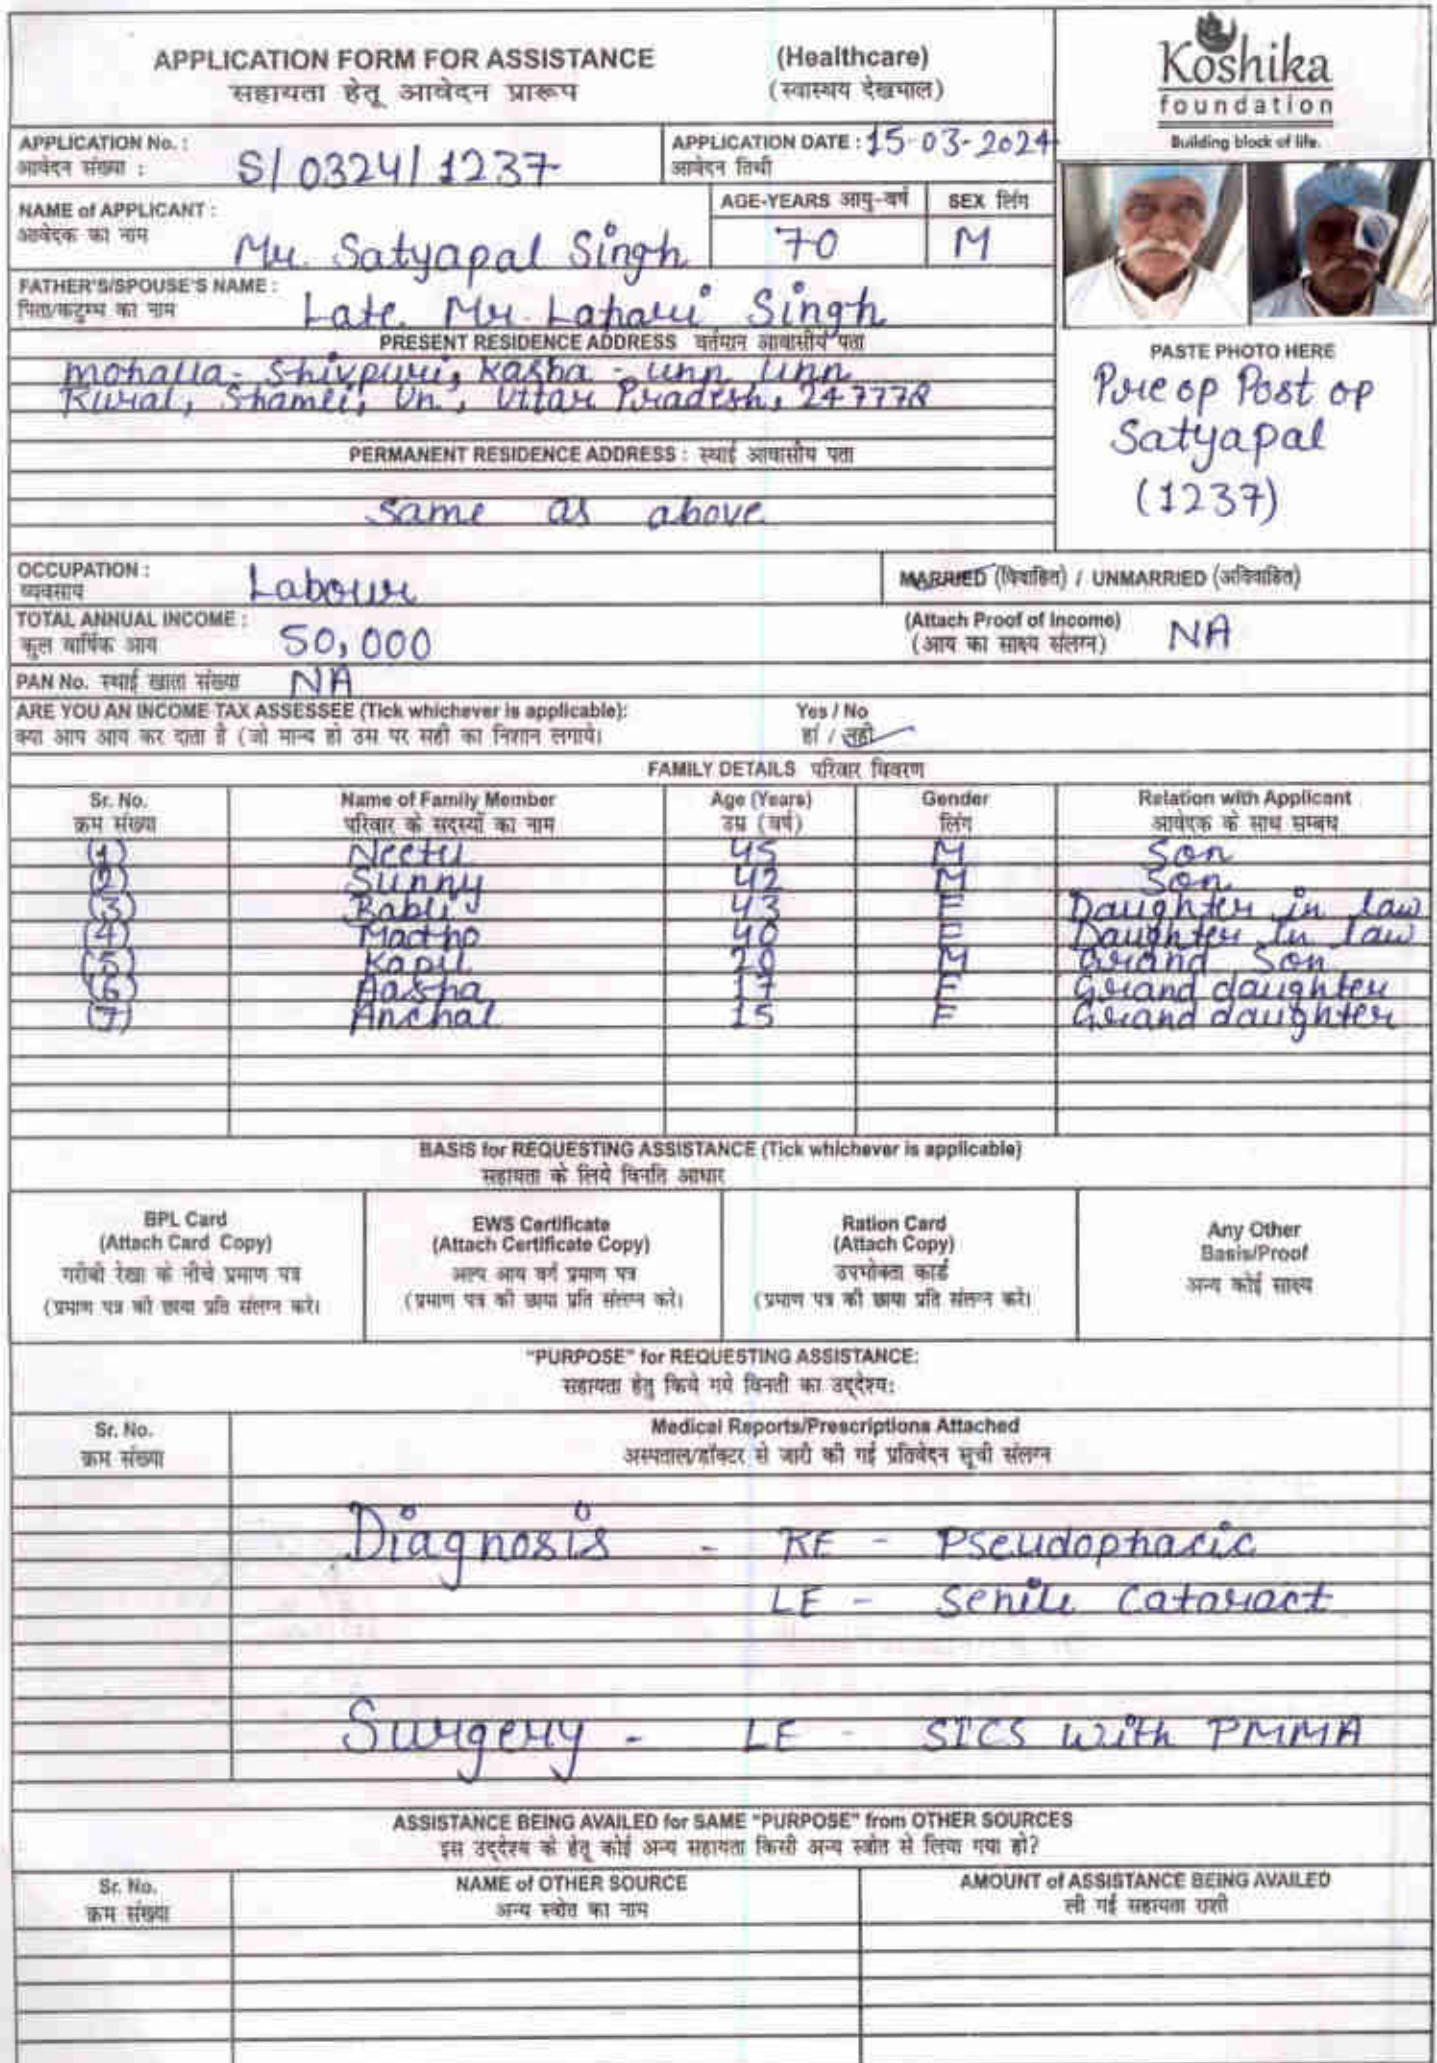 APPLICATION FORM FOR ASSISTANCE (Healthcare)
सहायता हेतू आवेदन प्रारूप (स्वास्थय देखभाल)
Koshika
foundation
Building block of life.
APPLICATION No. : S/0324/1237
आवेदन संख्या :
APPLICATION DATE : 15-03-2024
आवेदन तिथी
NAME of APPLICANT :
आवेदक का नाम
Mr. Satyapal Singh
AGE-YEARS आयु-वर्ष
70
SEX लिंग
M
FATHER'S/SPOUSE'S NAME :
पिता/कटुम्ब का नाम
Late. Mr. Lahari Singh
PRESENT RESIDENCE ADDRESS वर्तमान आवासीय पता
Mohalla- Shivpuri, Kasba - unn unn
Rural, Shamli, Un, Uttar Pradesh, 247778
PERMANENT RESIDENCE ADDRESS : स्थाई आवासीय पता
same as above
PASTE PHOTO HERE
Pre op Post op
Satyapal
(1237)
OCCUPATION :
व्यवसाय
Labour
MARRIED (विवाहित) / UNMARRIED (अविवाहित)
TOTAL ANNUAL INCOME :
कुल वार्षिक आय
50,000
(Attach Proof of Income)
(आय का साक्ष्य संलग्न)
NA
PAN No. स्थाई खाता संख्या NA
ARE YOU AN INCOME TAX ASSESSEE (Tick whichever is applicable): Yes / No
क्या आप आय कर दाता है (जो मान्य हो उस पर सही का निशान लगाये। हां / नहीं
FAMILY DETAILS परिवार विवरण
Sr. No. Name of Family Member Age (Years) Gender Relation with Applicant
क्रम संख्या परिवार के सदस्यों का नाम उम्र (वर्ष) लिंग आवेदक के साथ सम्बध
(1) Neetu 45 M Son
(2) Sunny 42 M Son
(3) Babli 43 F Daughter in law
(4) Madho 40 F Daughter in law
(5) Kapil 20 M Grand Son
(6) Aasha 17 F Grand daughter
(7) Anchal 15 F Grand daughter
BASIS for REQUESTING ASSISTANCE (Tick whichever is applicable)
सहायता के लिये विनति आधार
BPL Card
(Attach Card Copy)
गरीबी रेखा के नीचे प्रमाण पत्र
(प्रमाण पत्र की छाया प्रति संलग्न करे।
EWS Certificate
(Attach Certificate Copy)
अल्प आय वर्ग प्रमाण पत्र
(प्रमाण पत्र की छाया प्रति संलग्न करे।
Ration Card
(Attach Copy)
उपभोक्ता कार्ड
(प्रमाण पत्र की छाया प्रति संलग्न करे।
Any Other
Basis/Proof
अन्य कोई साक्ष्य
"PURPOSE" for REQUESTING ASSISTANCE:
सहायता हेतु किये गये विनती का उद्देश्य:
Sr. No. Medical Reports/Prescriptions Attached
क्रम संख्या अस्पताल/डॉक्टर से जारी की गई प्रतिवेदन सूची संलग्न
Diagnosis - RE - Pseudophacic
LE - Senile Cataract
Surgery - LE - SICS with PMMA
ASSISTANCE BEING AVAILED for SAME "PURPOSE" from OTHER SOURCES
इस उद्देश्य के हेतु कोई अन्य सहायता किसी अन्य स्त्रोत से लिया गया हो?
Sr. No. NAME of OTHER SOURCE AMOUNT of ASSISTANCE BEING AVAILED
क्रम संख्या अन्य स्त्रोत का नाम ली गई सहायता राशी